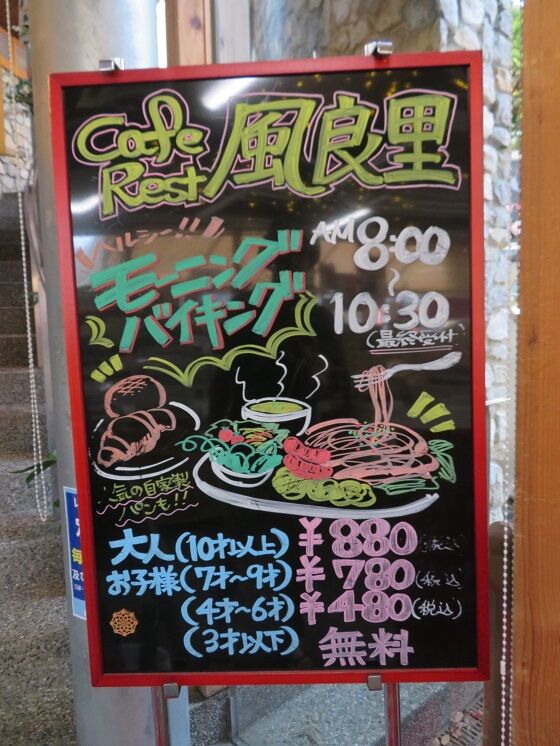 Cafe
Rest 風良里
ヘルシー!!!
モーニング
バイキング
AM 8:00
〜
10:30
(最終受付)
人気の自家製
パンも!!
大人(10才以上) ¥880(税込)
お子様(7才〜9才) ¥780(税込)
(4才〜6才) ¥480(税込)
(3才以下) 無料